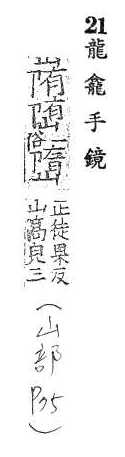 21 龍龕手鏡
俗
正徒果反
山髙皃三
(山部 P75)